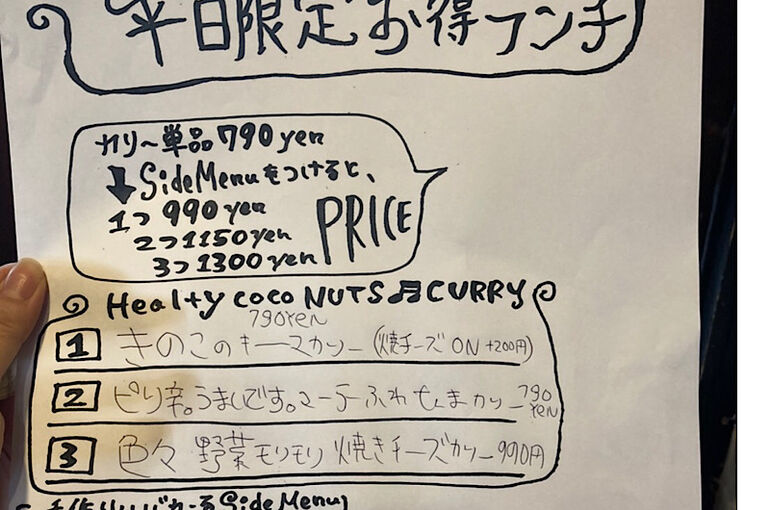 平日限定お得ランチ
カリ〜単品790yen
↓SideMenuをつけると、
1つ990yen
2つ1150yen
3つ1300yen
PRICE
Healty coco NUTS♬CURRY
790yen
1 きのこのキーマカリー(焼チーズON+200円)
2 ピリ辛。うましです。マーラーふわ カリー790yen
3 色々野菜モリモリ焼きチーズカリー990円
SideMenu